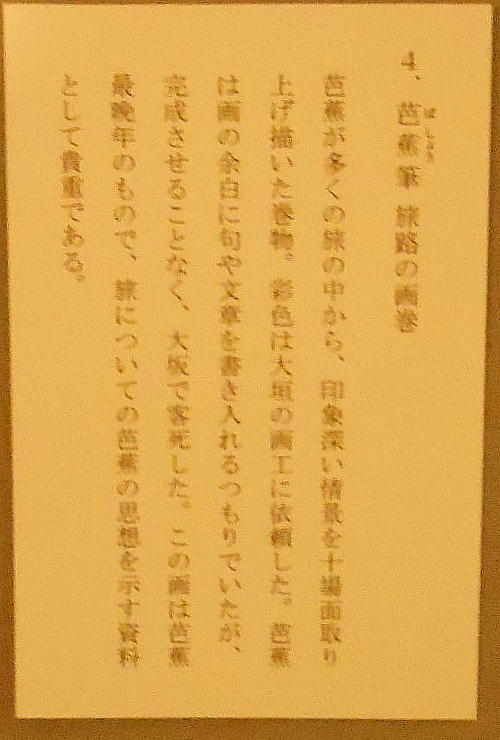 4、芭蕉筆 旅路の画巻
ばしょう
芭蕉が多くの旅の中から、印象深い情景を十場面取り
上げ描いた巻物。彩色は大垣の画工に依頼した。芭蕉
は画の余白に句や文章を書き入れるつもりでいたが、
完成させることなく、大坂で客死した。この画は芭蕉
最晩年のもので、旅についての芭蕉の思想を示す資料
として貴重である。